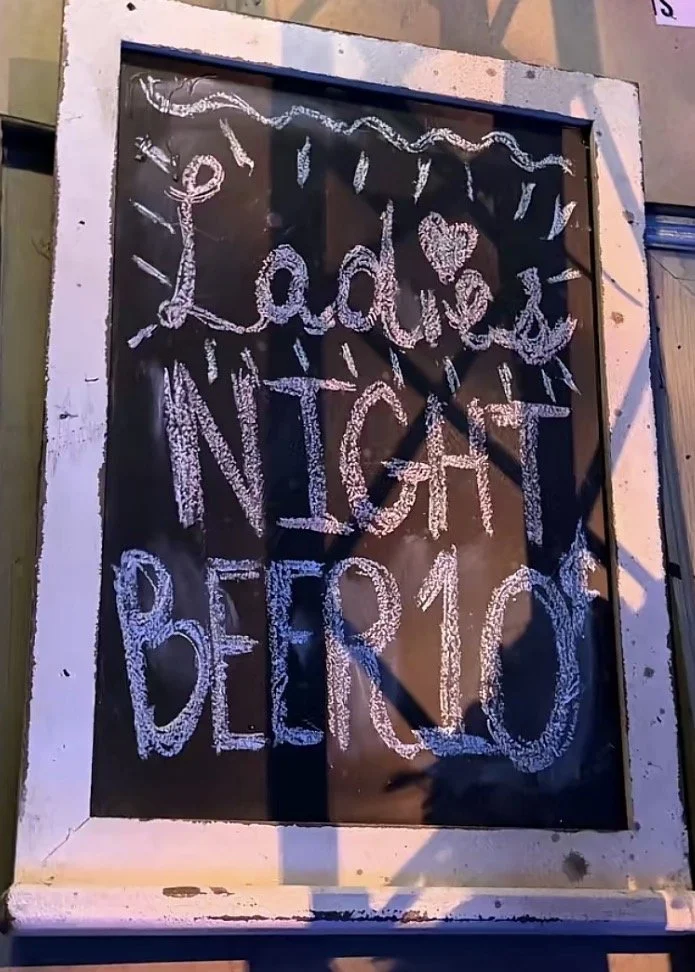 Ladies
NIGHT
BEER 10¢